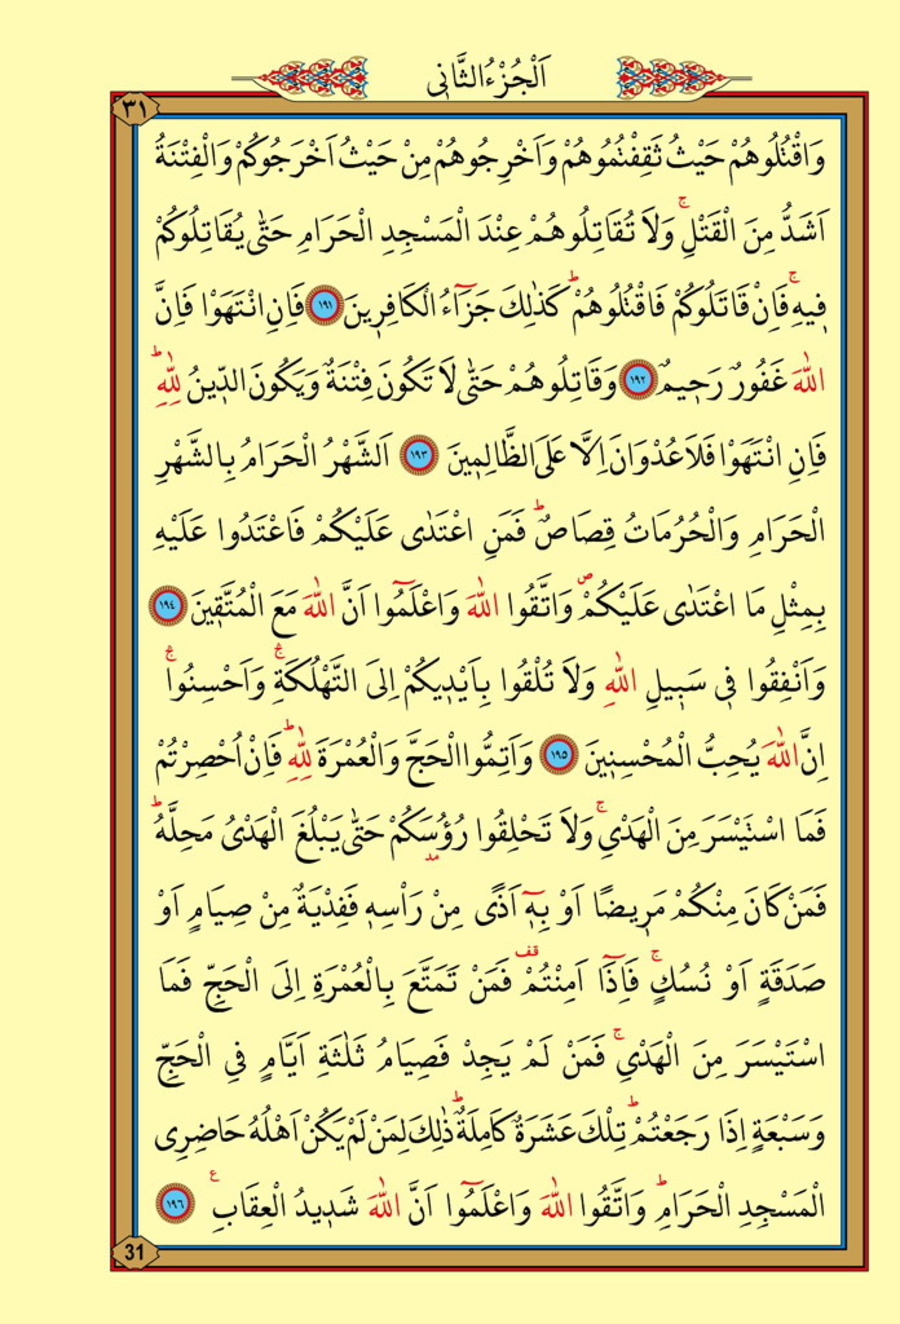 اَلْجُزْءُ الثَّانٖي
٣١
وَاقْتُلُوهُمْ حَيْثُ ثَقِفْتُمُوهُمْ وَاَخْرِجُوهُمْ مِنْ حَيْثُ اَخْرَجُوكُمْ وَالْفِتْنَةُ
اَشَدُّ مِنَ الْقَتْلِۚ وَلَا تُقَاتِلُوهُمْ عِنْدَ الْمَسْجِدِ الْحَرَامِ حَتّٰى يُقَاتِلُوكُمْ
فٖيهِۚ فَاِنْ قَاتَلُوكُمْ فَاقْتُلُوهُمْؕ كَذٰلِكَ جَزَٓاءُ الْكَافِرٖينَ ﴿١٩١﴾ فَاِنِ انْتَهَوْا فَاِنَّ
اللّٰهَ غَفُورٌ رَحٖيمٌ ﴿١٩٢﴾ وَقَاتِلُوهُمْ حَتّٰى لَا تَكُونَ فِتْنَةٌ وَيَكُونَ الدّٖينُ لِلّٰهِؕ
فَاِنِ انْتَهَوْا فَلَا عُدْوَانَ اِلَّا عَلَى الظَّالِمٖينَ ﴿١٩٣﴾ اَلشَّهْرُ الْحَرَامُ بِالشَّهْرِ
الْحَرَامِ وَالْحُرُمَاتُ قِصَاصٌؕ فَمَنِ اعْتَدٰى عَلَيْكُمْ فَاعْتَدُوا عَلَيْهِ
بِمِثْلِ مَا اعْتَدٰى عَلَيْكُمْࣕ وَاتَّقُوا اللّٰهَ وَاعْلَمُٓوا اَنَّ اللّٰهَ مَعَ الْمُتَّقٖينَ ﴿١٩٤﴾
وَاَنْفِقُوا فٖي سَبٖيلِ اللّٰهِ وَلَا تُلْقُوا بِاَيْدٖيكُمْ اِلَى التَّهْلُكَةِۚۛ وَاَحْسِنُواۚۛ
اِنَّ اللّٰهَ يُحِبُّ الْمُحْسِنٖينَ ﴿١٩٥﴾ وَاَتِمُّوا الْحَجَّ وَالْعُمْرَةَ لِلّٰهِؕ فَاِنْ اُحْصِرْتُمْ
فَمَا اسْتَيْسَرَ مِنَ الْهَدْيِۚ وَلَا تَحْلِقُوا رُؤُسَكُمْ حَتّٰى يَبْلُغَ الْهَدْيُ مَحِلَّهُؕ
فَمَنْ كَانَ مِنْكُمْ مَرٖيضًا اَوْ بِهٖٓ اَذًى مِنْ رَاْسِهٖ فَفِدْيَةٌ مِنْ صِيَامٍ اَوْ
صَدَقَةٍ اَوْ نُسُكٍۚ فَاِذَٓا اَمِنْتُمْ۠ قف فَمَنْ تَمَتَّعَ بِالْعُمْرَةِ اِلَى الْحَجِّ فَمَا
اسْتَيْسَرَ مِنَ الْهَدْيِۚ فَمَنْ لَمْ يَجِدْ فَصِيَامُ ثَلٰثَةِ اَيَّامٍ فِي الْحَجِّ
وَسَبْعَةٍ اِذَا رَجَعْتُمْؕ تِلْكَ عَشَرَةٌ كَامِلَةٌؕ ذٰلِكَ لِمَنْ لَمْ يَكُنْ اَهْلُهُ حَاضِرِى
الْمَسْجِدِ الْحَرَامِؕ وَاتَّقُوا اللّٰهَ وَاعْلَمُٓوا اَنَّ اللّٰهَ شَدٖيدُ الْعِقَابِ ع ﴿١٩٦﴾
31